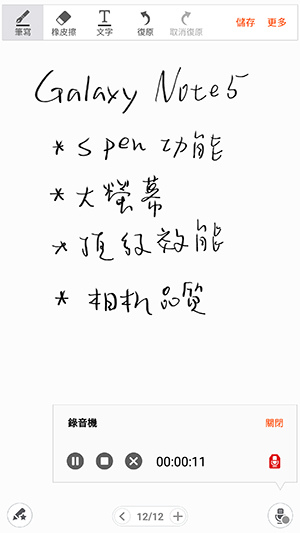 筆寫 橡皮擦 文字 復原 取消復原 儲存 更多
Galaxy Note5
* S pen 功能
* 大螢幕
* 頂級效能
* 相机品質
錄音機 關閉
00:00:11
12/12